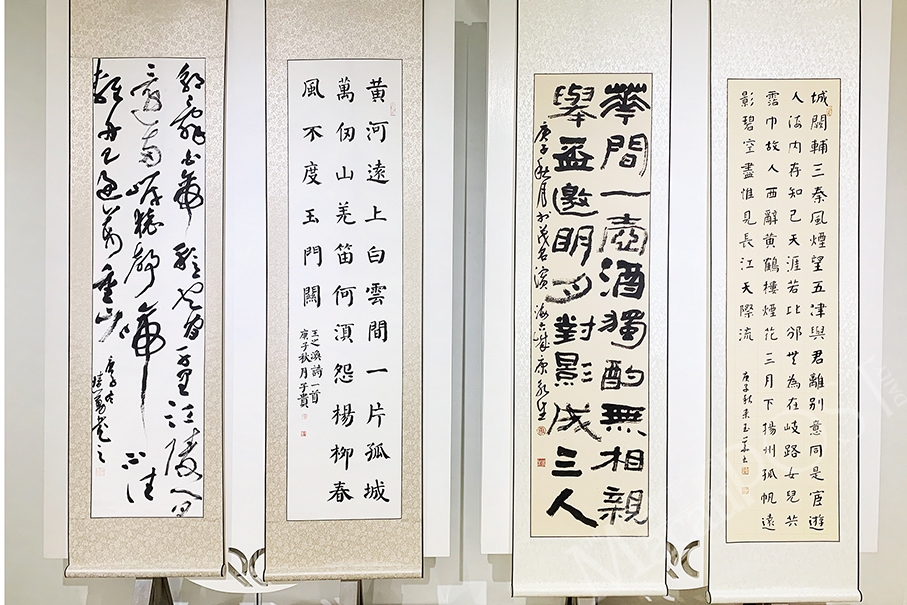 城闕輔三秦風煙望五津與君離別意同是宦遊
人海内存知己天涯若比邻為在岐路女兒共
霑巾故人西辭黃鶴樓煙花三月下揚州孤帆遠
影碧空盡惟見長江天際流
庚子秋
華間一壺酒獨酌無相親
舉盃邀明月對影成三人
庚子秋月於茂名濱海
黄河遠上白雲間一片孤城
萬仞山羌笛何湏怨楊柳春
風不度玉門關
王之渙詩一首
庚子秋月子貴
朝辭白帝彩雲間千里江陵一日
還兩岸猿聲啼不住
輕舟已過萬重山